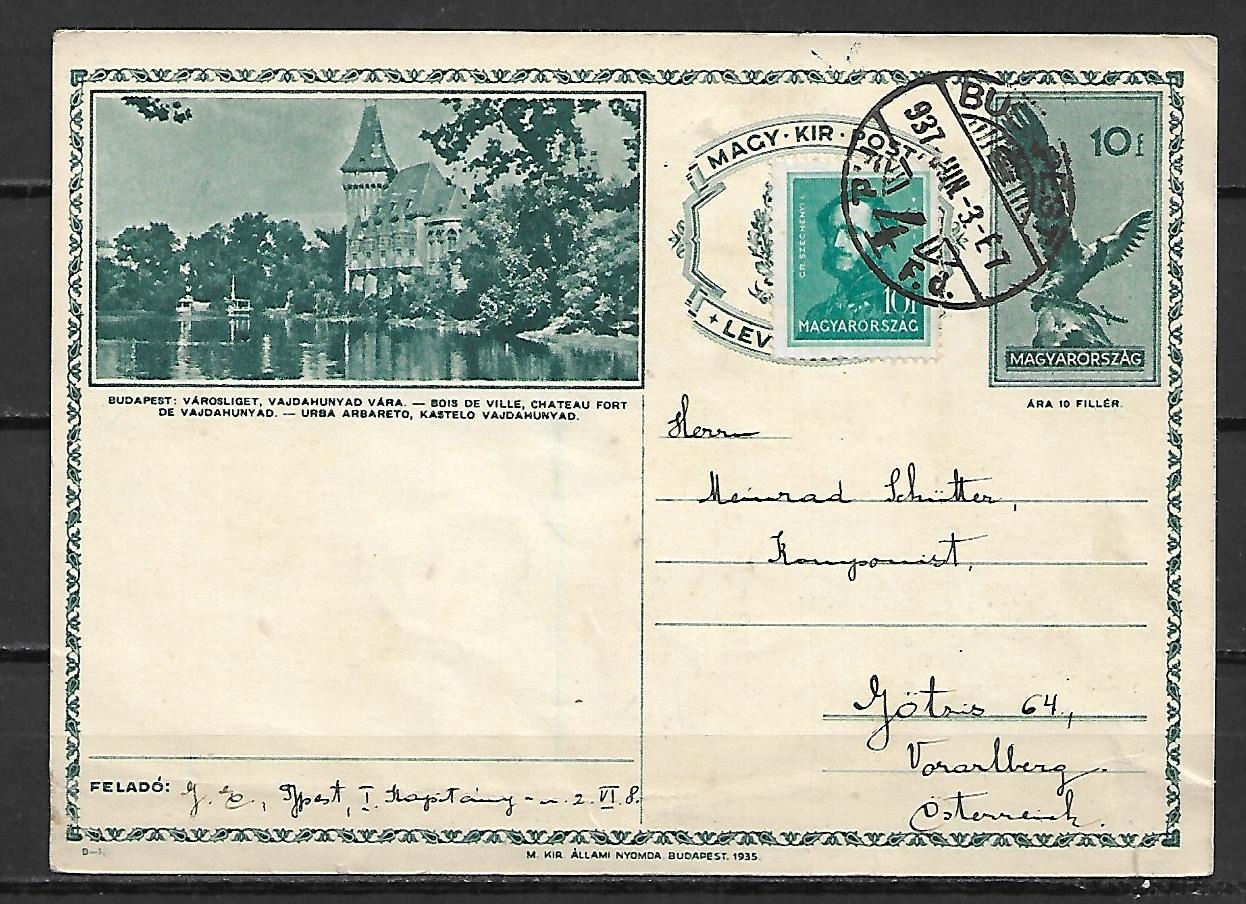 BUDAPEST: VÁROSLIGET, VAJDAHUNYAD VÁRA. — BOIS DE VILLE, CHATEAU FORT
DE VAJDAHUNYAD. — URBA ARBARETO, KASTELO VAJDAHUNYAD.
MAGY·KIR·POST
+ LEV
GR. SZÉCHENYI I.
10f
MAGYARORSZÁG
937 JUN-3.-
P. 4 F.d.
10f
MAGYARORSZÁG
ÁRA 10 FILLÉR.
Herrn
Meinrad Schütter,
Komponist,
Götzis 64,
Vorarlberg.
Österreich.
FELADÓ: Bpest, I. Kapitány-u. 2. VI 8.
D—
M. KIR. ÁLLAMI NYOMDA BUDAPEST. 1935.